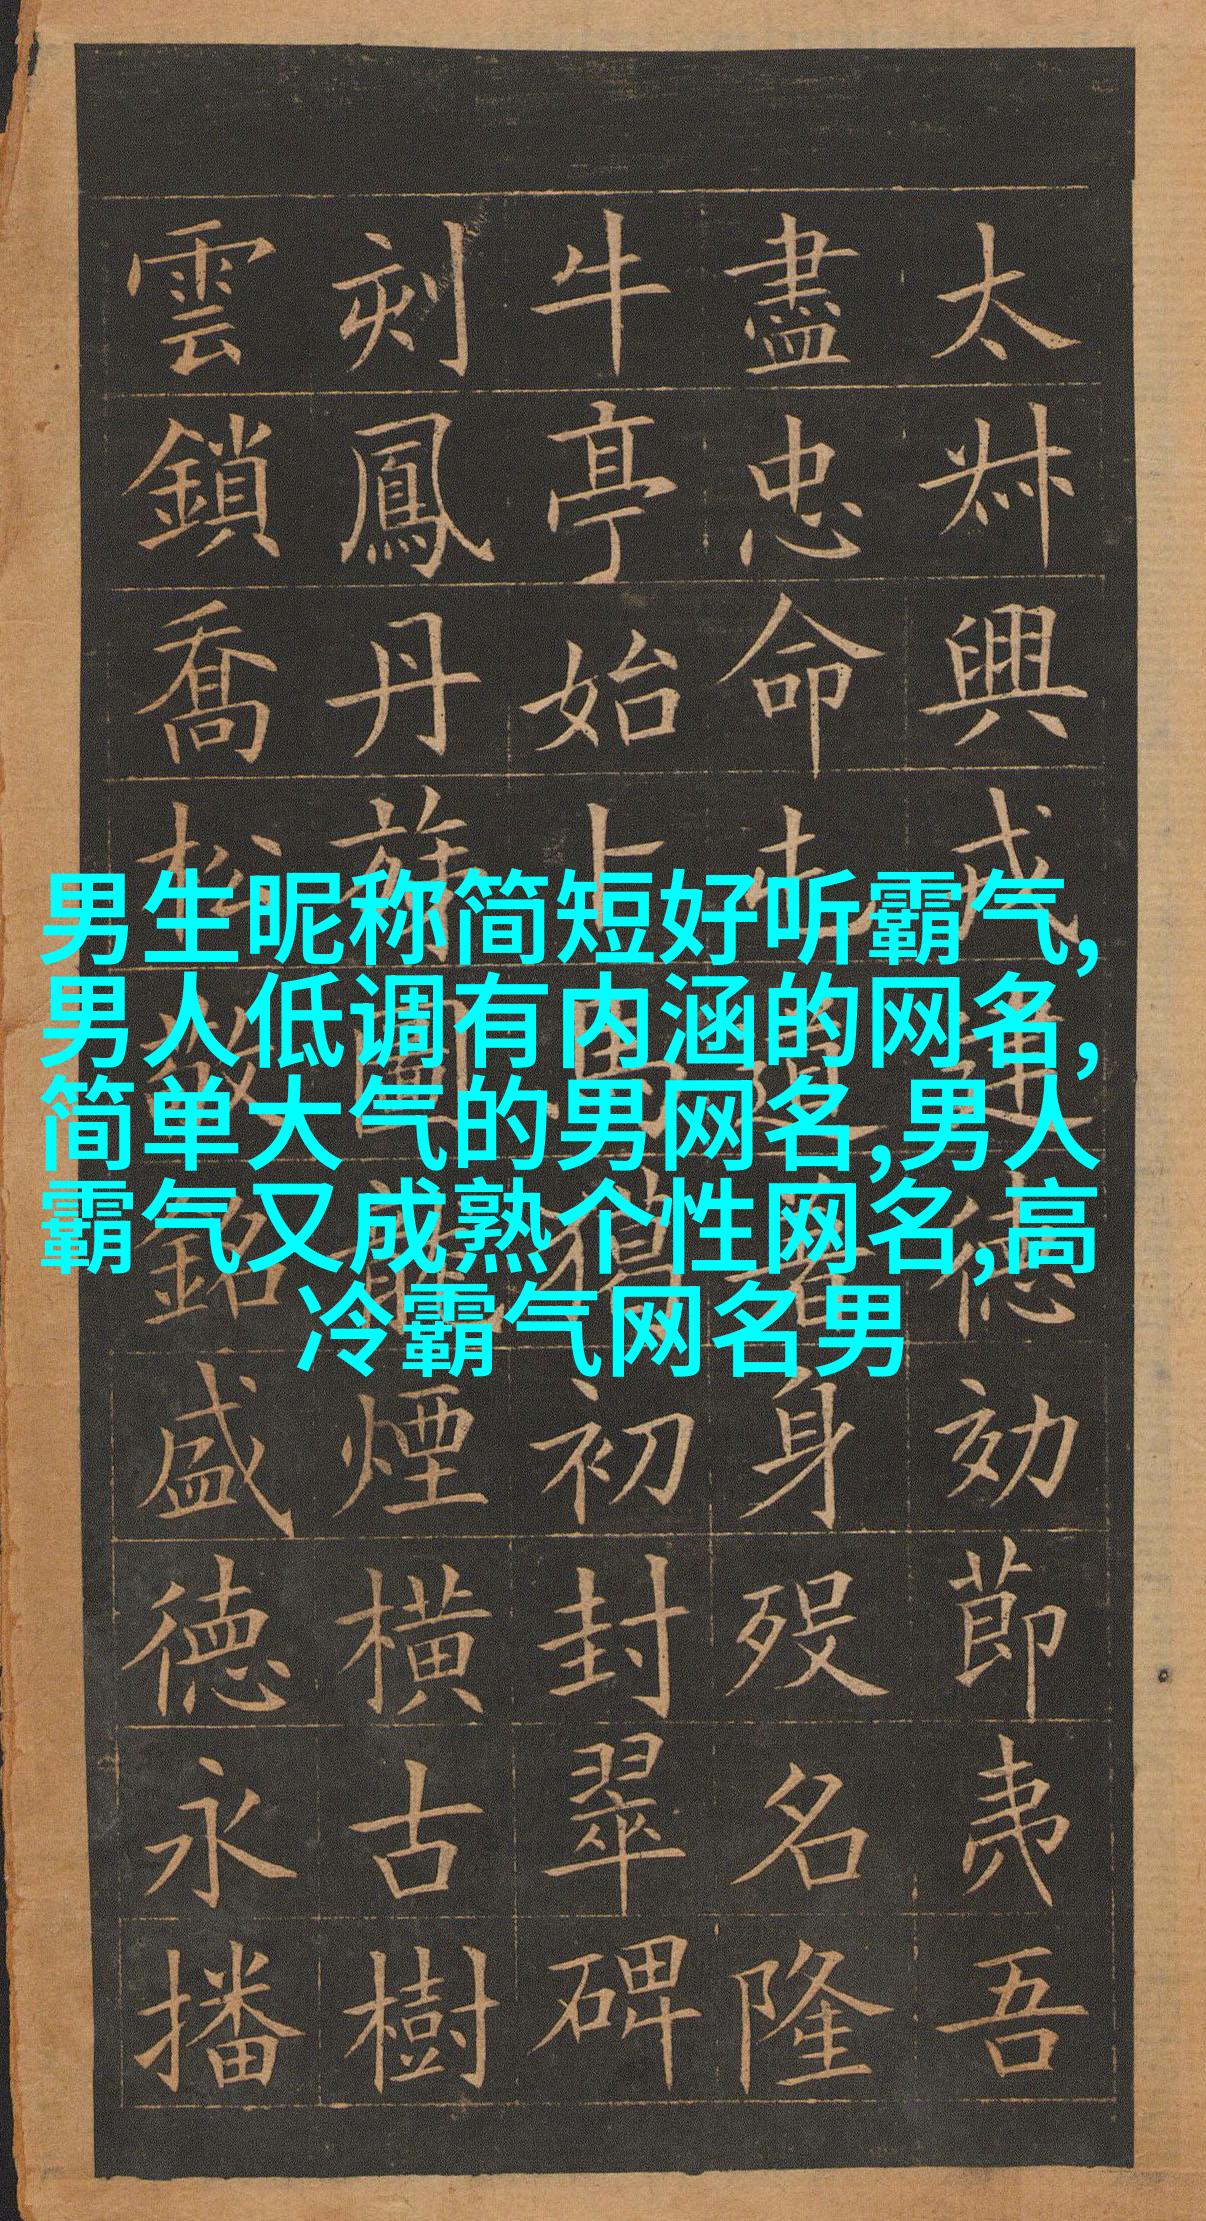 太叔興戎建德効節夷吾
盡忠命屯道著身歿名隆
牛亭始卜馬獵初封翠碑
刻鳳丹旐圖龍煙橫古樹
雲鎖喬松敬銘盛德永播
男生昵称简短好听霸气,
男人低调有内涵的网名,
简单大气的男网名,男人
霸气又成熟个性网名,高
冷霸气网名男